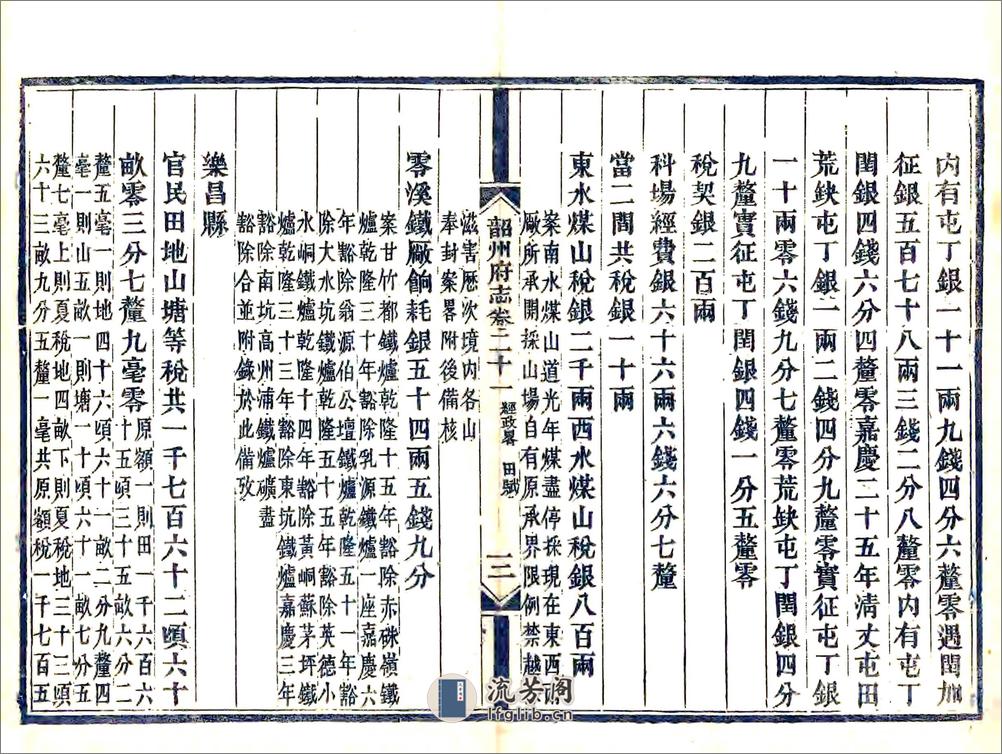 內有屯丁銀一十一兩九錢四分六釐零遇閏加
征銀五百七十八兩三錢二分八釐零內有屯丁
閏銀四錢六分四釐零嘉慶二十五年清丈屯田
荒缺屯丁銀一兩二錢四分九釐零實征屯丁銀
一十兩零六錢九分七釐零荒缺屯丁閏銀四分
九釐實征屯丁閏銀四錢一分五釐零
稅契銀二百兩
科場經費銀六十六兩六錢六分七釐
當二間共稅銀一十兩
東水煤山稅銀二千兩西水煤山稅銀八百兩
案南水煤山道光年煤盡停採現在東西
廠所承開採山場自有原承界限例禁越
韶州府志卷二十一
經政畧 田賦
十三
滋害歷次境內各山
奉封案畧附後備核
零溪鐵廠餉耗銀五十四兩五錢九分
案甘竹都鐵爐乾隆十五年豁除赤硃嶺鐵
爐乾隆三十年豁除乳源鐵爐一座嘉慶六
年豁除翁源伯公壇鐵爐乾隆五十一年豁
除大水坑鐵爐乾隆五十五年除英德小
水峒鐵爐乾隆十四年豁除黃峒蘇茅坪鐵
爐乾隆三十三年豁除東坑鐵爐嘉慶三年
豁除南坑高州浦鐵爐礦盡
豁除合並附錄於此備攷
樂昌縣
官民田地山塘等稅共一千七百六十二頃六十
畝零三分七釐九毫零
原額一則田一千六百六
十五頃三十五畝六分二
釐五毫一則地四十六頃六十一畝二分九釐四
毫一則山五畝一則塘一十頃六十一畝七分五
釐七毫上則夏稅地四畝下則夏稅地三十三頃
六十三畝九分五釐一毫共原額稅一千七百五
流芳閣
lfglib.cn